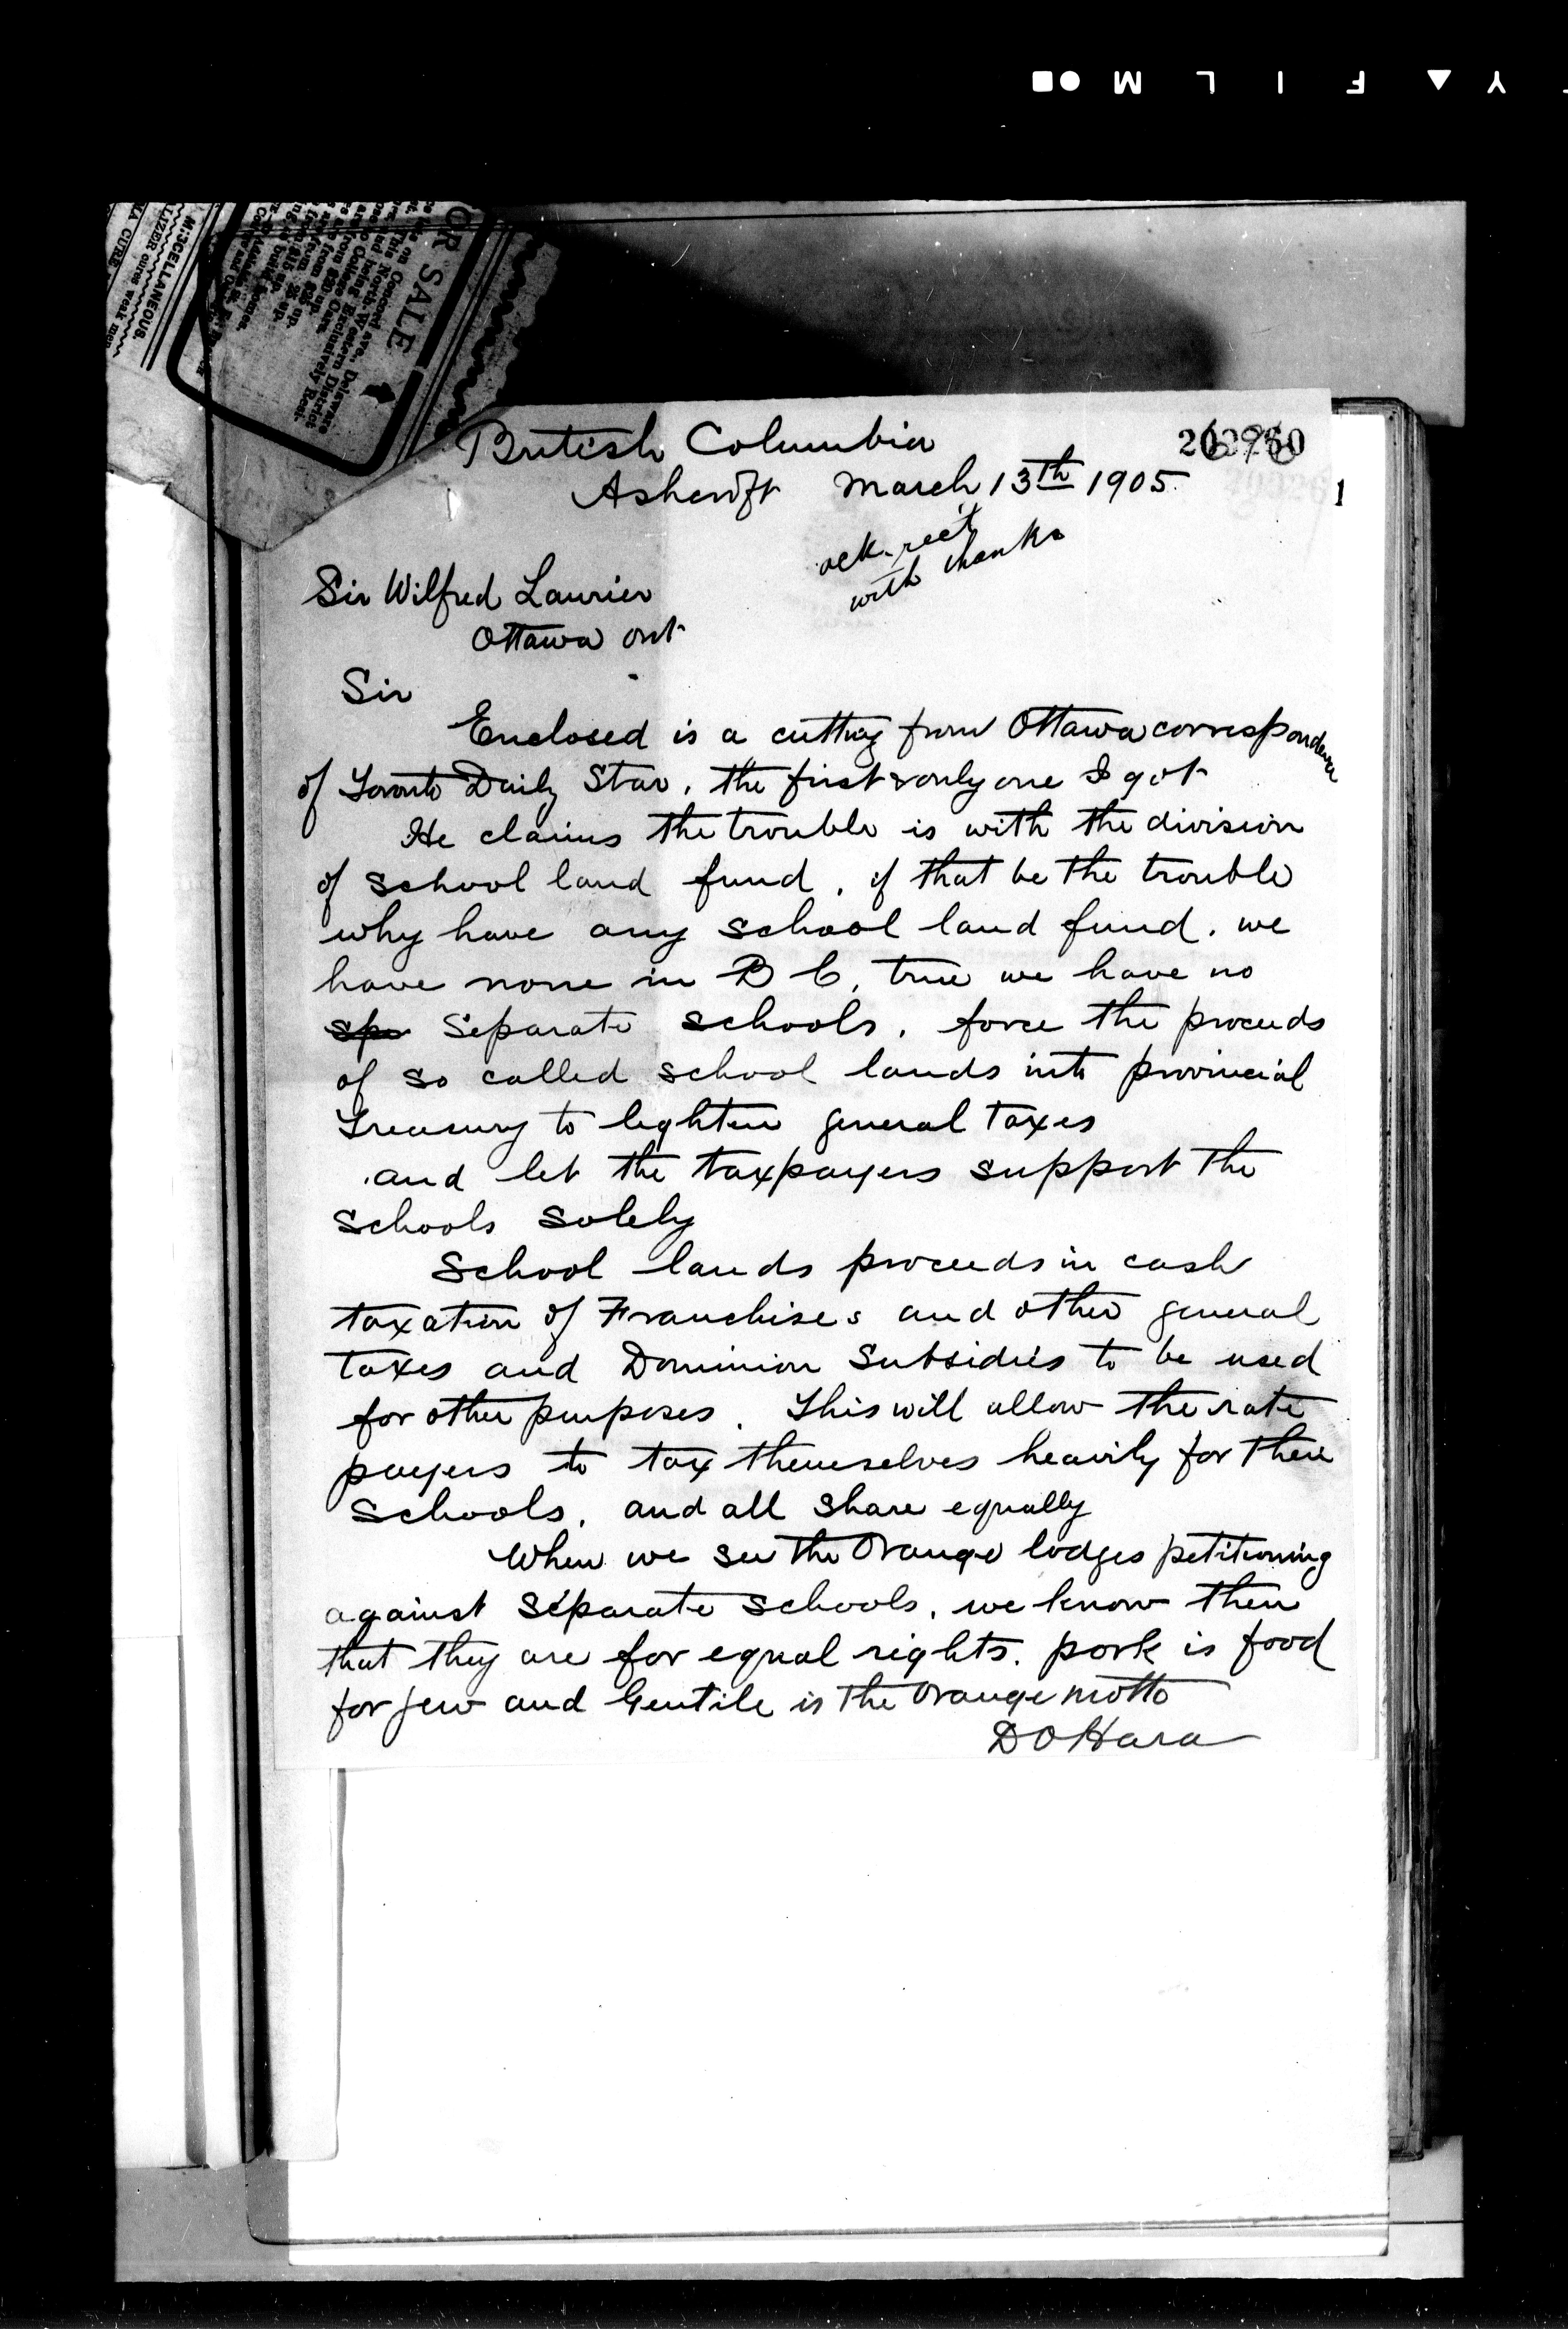 British Columbia
Ashcroft March 13th 1905
ack. rect
with thanks
Sir Wilfred Laurier
Ottawa ont
Sir
Enclosed is a cutting from Ottawa correspondence
of Toronto Daily Star, the first & only one I got
He claims the trouble is with the division
of school land fund, if that be the trouble
why have any school land fund. we
have none in B C, true we have no
spe Separate schools, force the proceeds
of so called school lands into provincial
Treasury to lighten general taxes
and let the taxpayers support the
schools solely
School lands proceeds in cash
taxation of Franchises and other general
taxes and Dominion Subsidies to be used
for other purposes. This will allow the rate
payers to tax themselves heavily for their
schools, and all share equally
When we see the Orange lodges petitioning
against separate schools, we know then
that they are for equal rights. pork is food
for jew and Gentile is the Orange motto
D O Hara
OR SALE
MISCELLANEOUS.
LIZER cures weak men
CURE